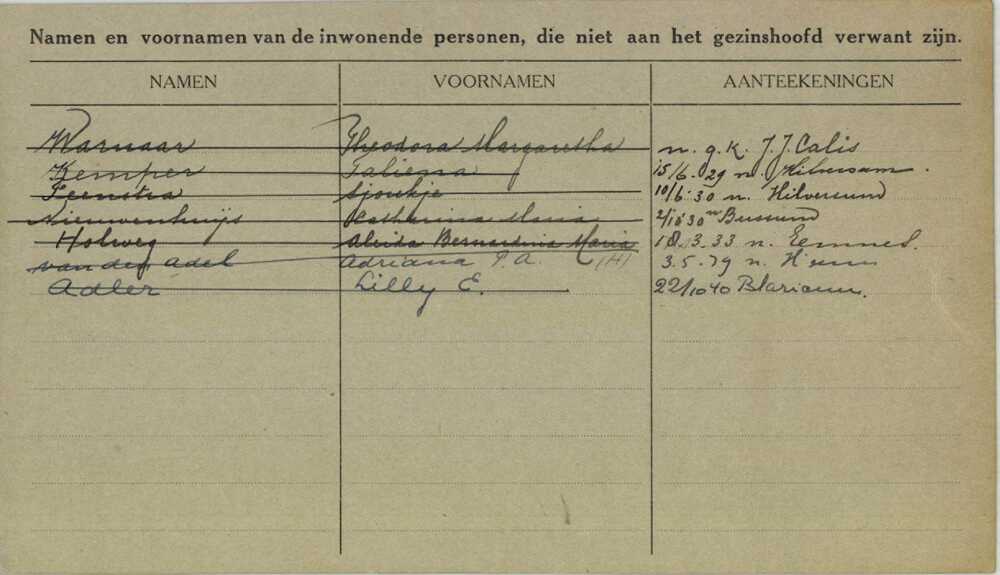 Namen en voornamen van de inwonende personen, die niet aan het gezinshoofd verwant zijn.
NAMEN VOORNAMEN AANTEEKENINGEN
Warnaar Theodora Margaretha n. g.K. J.J. Calis
Kemper Taliena 15/6.29 n. Hilversum.
Feenstra Sjoukje 10/6.30 n. Hilversum
Nieuwenhuijs Catharina Maria 2/10 30 n Bussum
Holweg Aleida Bernardina Maria 18.3.33 n. Eemnes.
van den Adel Adriana P.A. (H) 3.5.39 n. H'sum
Adler Lilly E. 22/10 40 Blaricum.